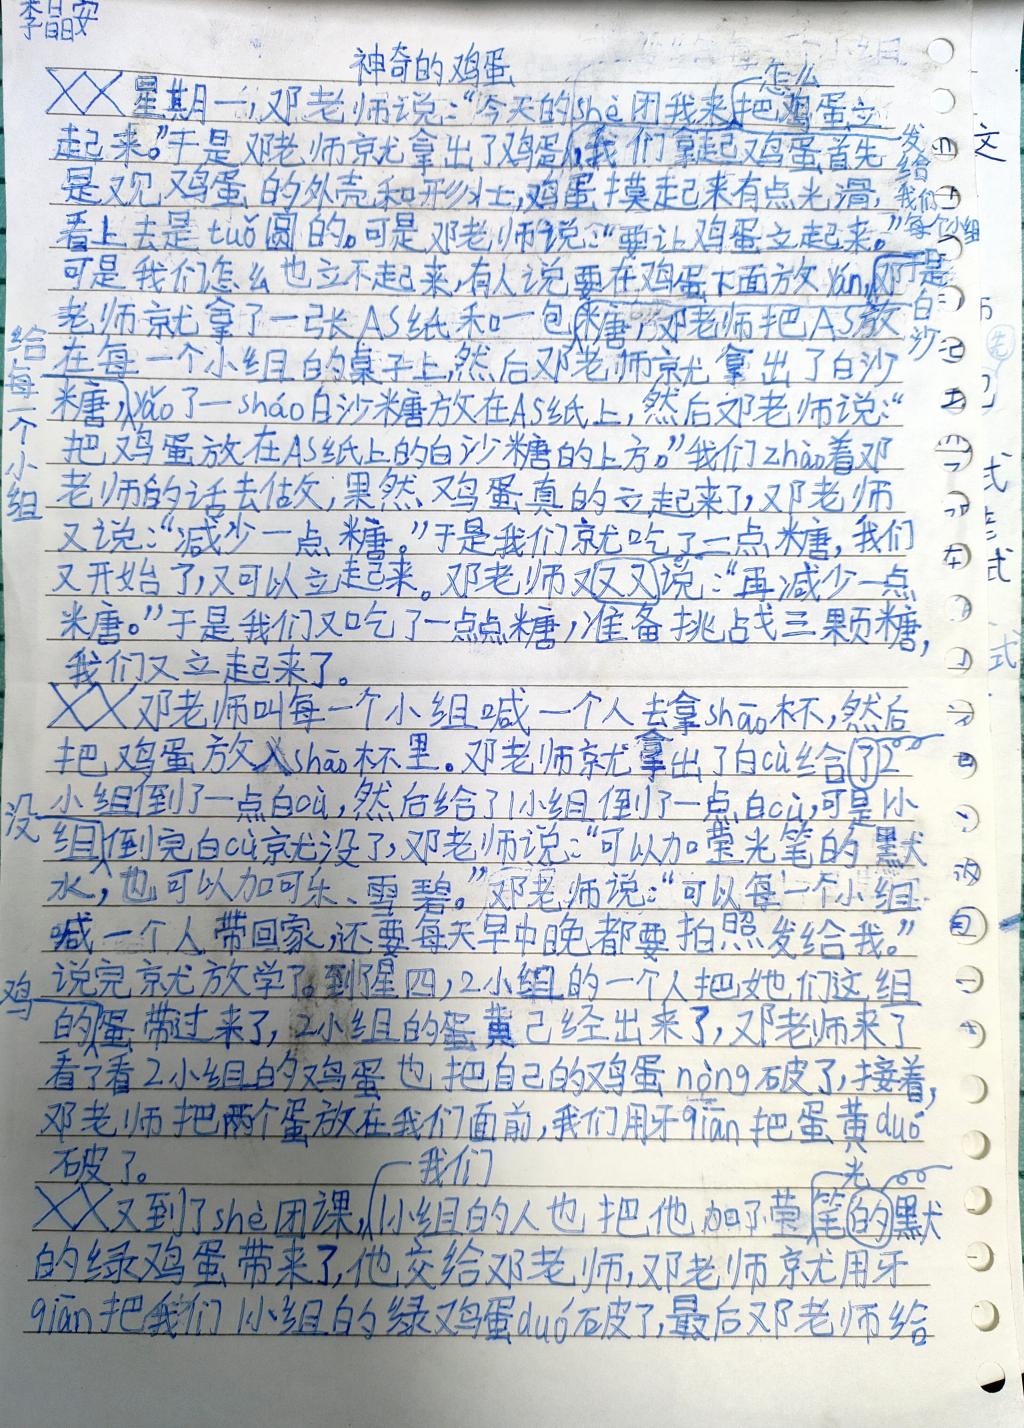 李晶安
神奇的鸡蛋
怎么
星期一，邓老师说：“今天的shè团我来把鸡蛋立
起来。”于是邓老师就拿出了鸡蛋，我们拿起鸡蛋首先
发给我们每个小组
是观鸡蛋的外壳和形壮，鸡蛋摸起来有点光滑，
看上去是tuǒ圆的。可是邓老师说：“要让鸡蛋立起来。”
可是我们怎么也立不起来，有人说要在鸡蛋下面放yán，邓
于是
老师就拿了一张A5纸和一包糖，邓老师把A5放
白沙
在每一个小组的桌子上，然后邓老师就拿出了白沙
给每一个小组
糖，yǎo了一sháo白沙糖放在A5纸上，然后邓老师说：“
把鸡蛋放在A5纸上的白沙糖的上方。”我们zhào着邓
老师的话去做，果然，鸡蛋真的立起来了，邓老师
又说：“减少一点糖。”于是我们就吃了一点糖，我们
又开始了，又可以立起来。邓老师又又又说：“再减少一点
糖。”于是我们又吃了一点点糖，准备挑战三颗糖，
我们又立起来了。
邓老师叫每一个小组喊一个人去拿shāo杯，然后
把鸡蛋放入shāo杯里。邓老师就拿出了白cù给了2
小组倒了一点白cù，然后给了1小组倒了一点白cù，可是1小
没
组倒完白cù就没了，邓老师说：“可以加萤光笔的默
水，也可以加可乐、雪碧。”邓老师说：“可以每一个小组
喊一个人带回家，还要每天早中晚都要拍照发给我。”
说完就放学了。到星四，2小组的一个人把她们这组
鸡
的蛋带过来了，2小组的蛋黄己经出来了，邓老师来了
看了看2小组的鸡蛋也把自己的鸡蛋nòng破了，接着，
邓老师把两个蛋放在我们面前，我们用牙qiān把蛋黄duó
破了。
我们
光
又到了shè团课，1小组的人也把他加了萤笔的默
的绿鸡蛋带来了，他交给邓老师，邓老师就用牙
qiān把我们1小组的绿鸡蛋duó破了，最后邓老师给